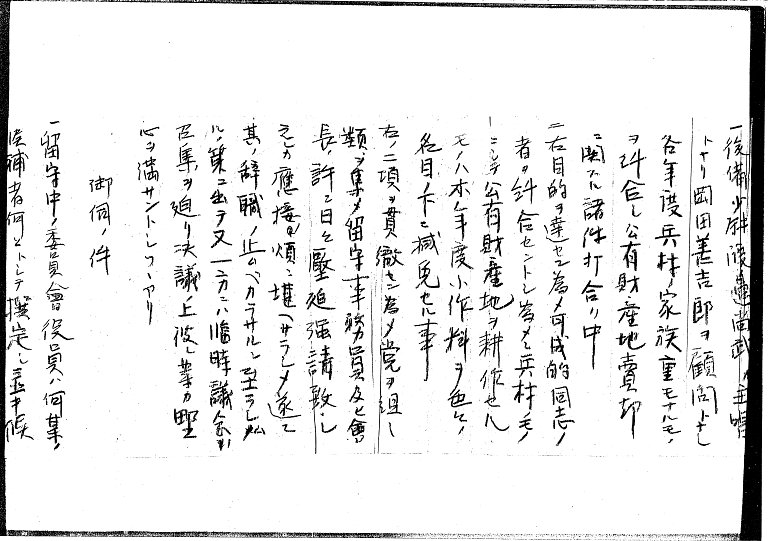 一後備少尉渡邊尚武ノ主唱
トナリ岡田善吉郎ヲ顧問トナシ
各年度兵村ノ家族重モナルモノ
ヲ糾合シ公有財産地賣却
ニ関スル諸件打合ノ中
二右目的ヲ達セン為メ可成的同志ノ
者ヲ糾合セントシ為メニ兵村ノモノ
ニシテ公有財産地ヲ耕作セル
モノハ本年度小作料ヲ色々ノ
名目ノ下ニ減免セル事
右ノ二項ヲ貫徹セン為メ党ヲ組シ
類ヲ集メ留守事務員及ヒ會
長ノ許ニ日々壓迫強請致シ
之カ應接ノ煩ニ堪ヘサラシメ遂ニ
其ノ辞職ノ止ムヘカラサルニ至ラシム
ルノ策ニ出テ又一方ニハ臨時議会ノ
召集ヲ迫リ決議ノ上彼レ等カ野
心ヲ満サントシツヽアリ
御伺ノ件
一留守中ノ委員會役員ハ何某ノ
候補者何ヒトシテ撰定シ並ヒ候